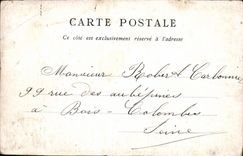 CARTE POSTALE
Ce côté est exclusivement réservé à l'adresse
Monsieur Robert Carbonnie
99 rue des aubépines
à Bois-Colombes
Seine